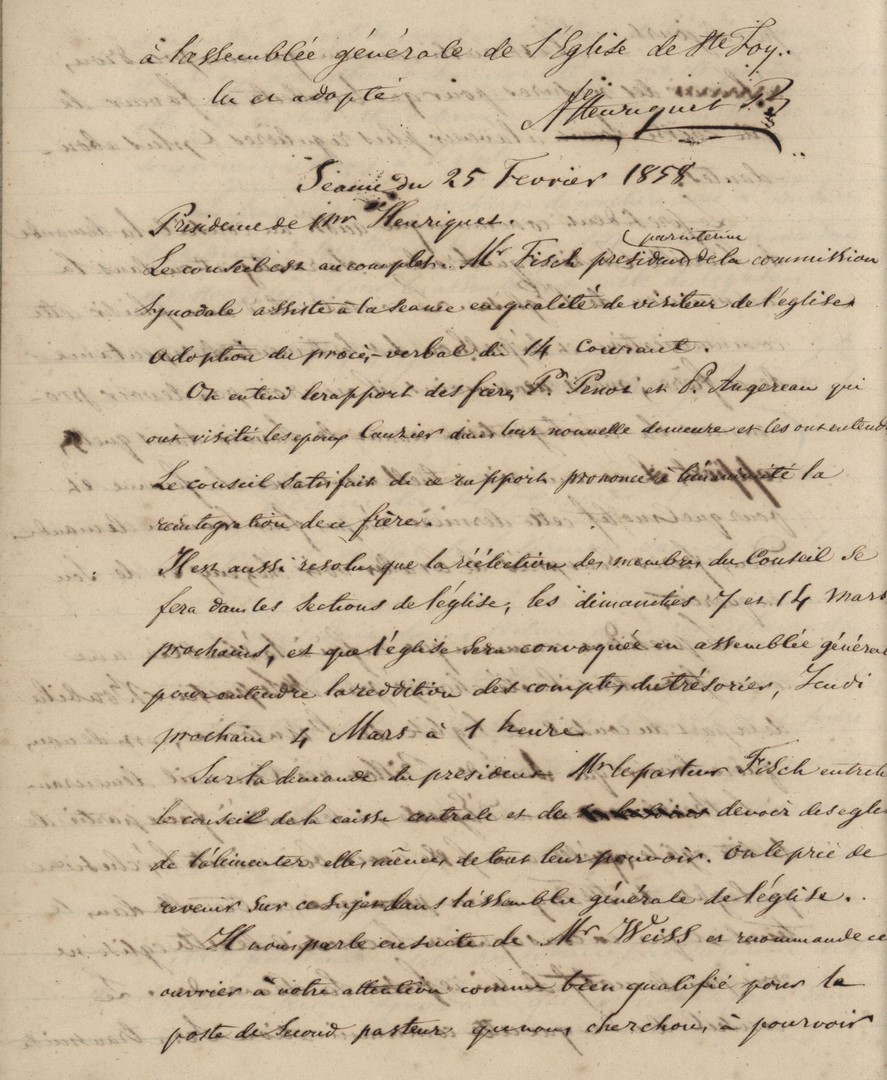 à l'assemblée générale de l'Eglise de Ste Foy.
lu et adopté
A Henriquet P.
Séance du 25 Fevrier 1858
Présidence de Mr Henriquet.
par interim
Le conseil est au complet. Mr Fisch président de la commission
Synodale assiste à la seance en qualité de visiteur de l'église.
Adoption du procès-verbal du 14 Courant.
On entend le rapport des frères Pre Penot et P. Angereau qui
ont visité les epoux Lauzier dans leur nouvelle demeure et les ont entendu
Le conseil satisfait de ce rapport prononce à l'unanimité la
reintegration de ce frère.
Il est aussi resolu que la réélection des membres du Conseil se
fera dans les sections de l'église, les dimanches 7 et 14 mars
prochains, et que l'église sera convoquée en assemblée général
pour entendre la reddition des comptes du trésorier, Jeudi
prochain 4 Mars à 1 heure.
Sur la demande du président Mr le pasteur Fisch entreti
le conseil de la caisse centrale et du devoir des eglis
de l'alimenter elles mêmes de tout leur pouvoir. On le prie de
revenir sur ce sujet dans l'assemblée générale de l'église.
Il nous parle ensuite de Mr Weiss et recommande ce
ouvrier à notre attention comme bien qualifié pour la
poste de Second pasteur que nous cherchons à pourvoir